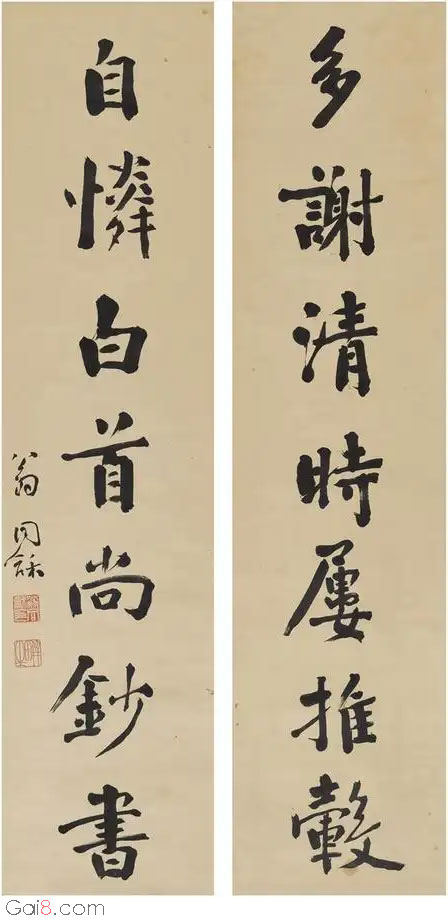 多謝清時屢推轂
自憐白首尚鈔書
翁同龢
Gai8.com